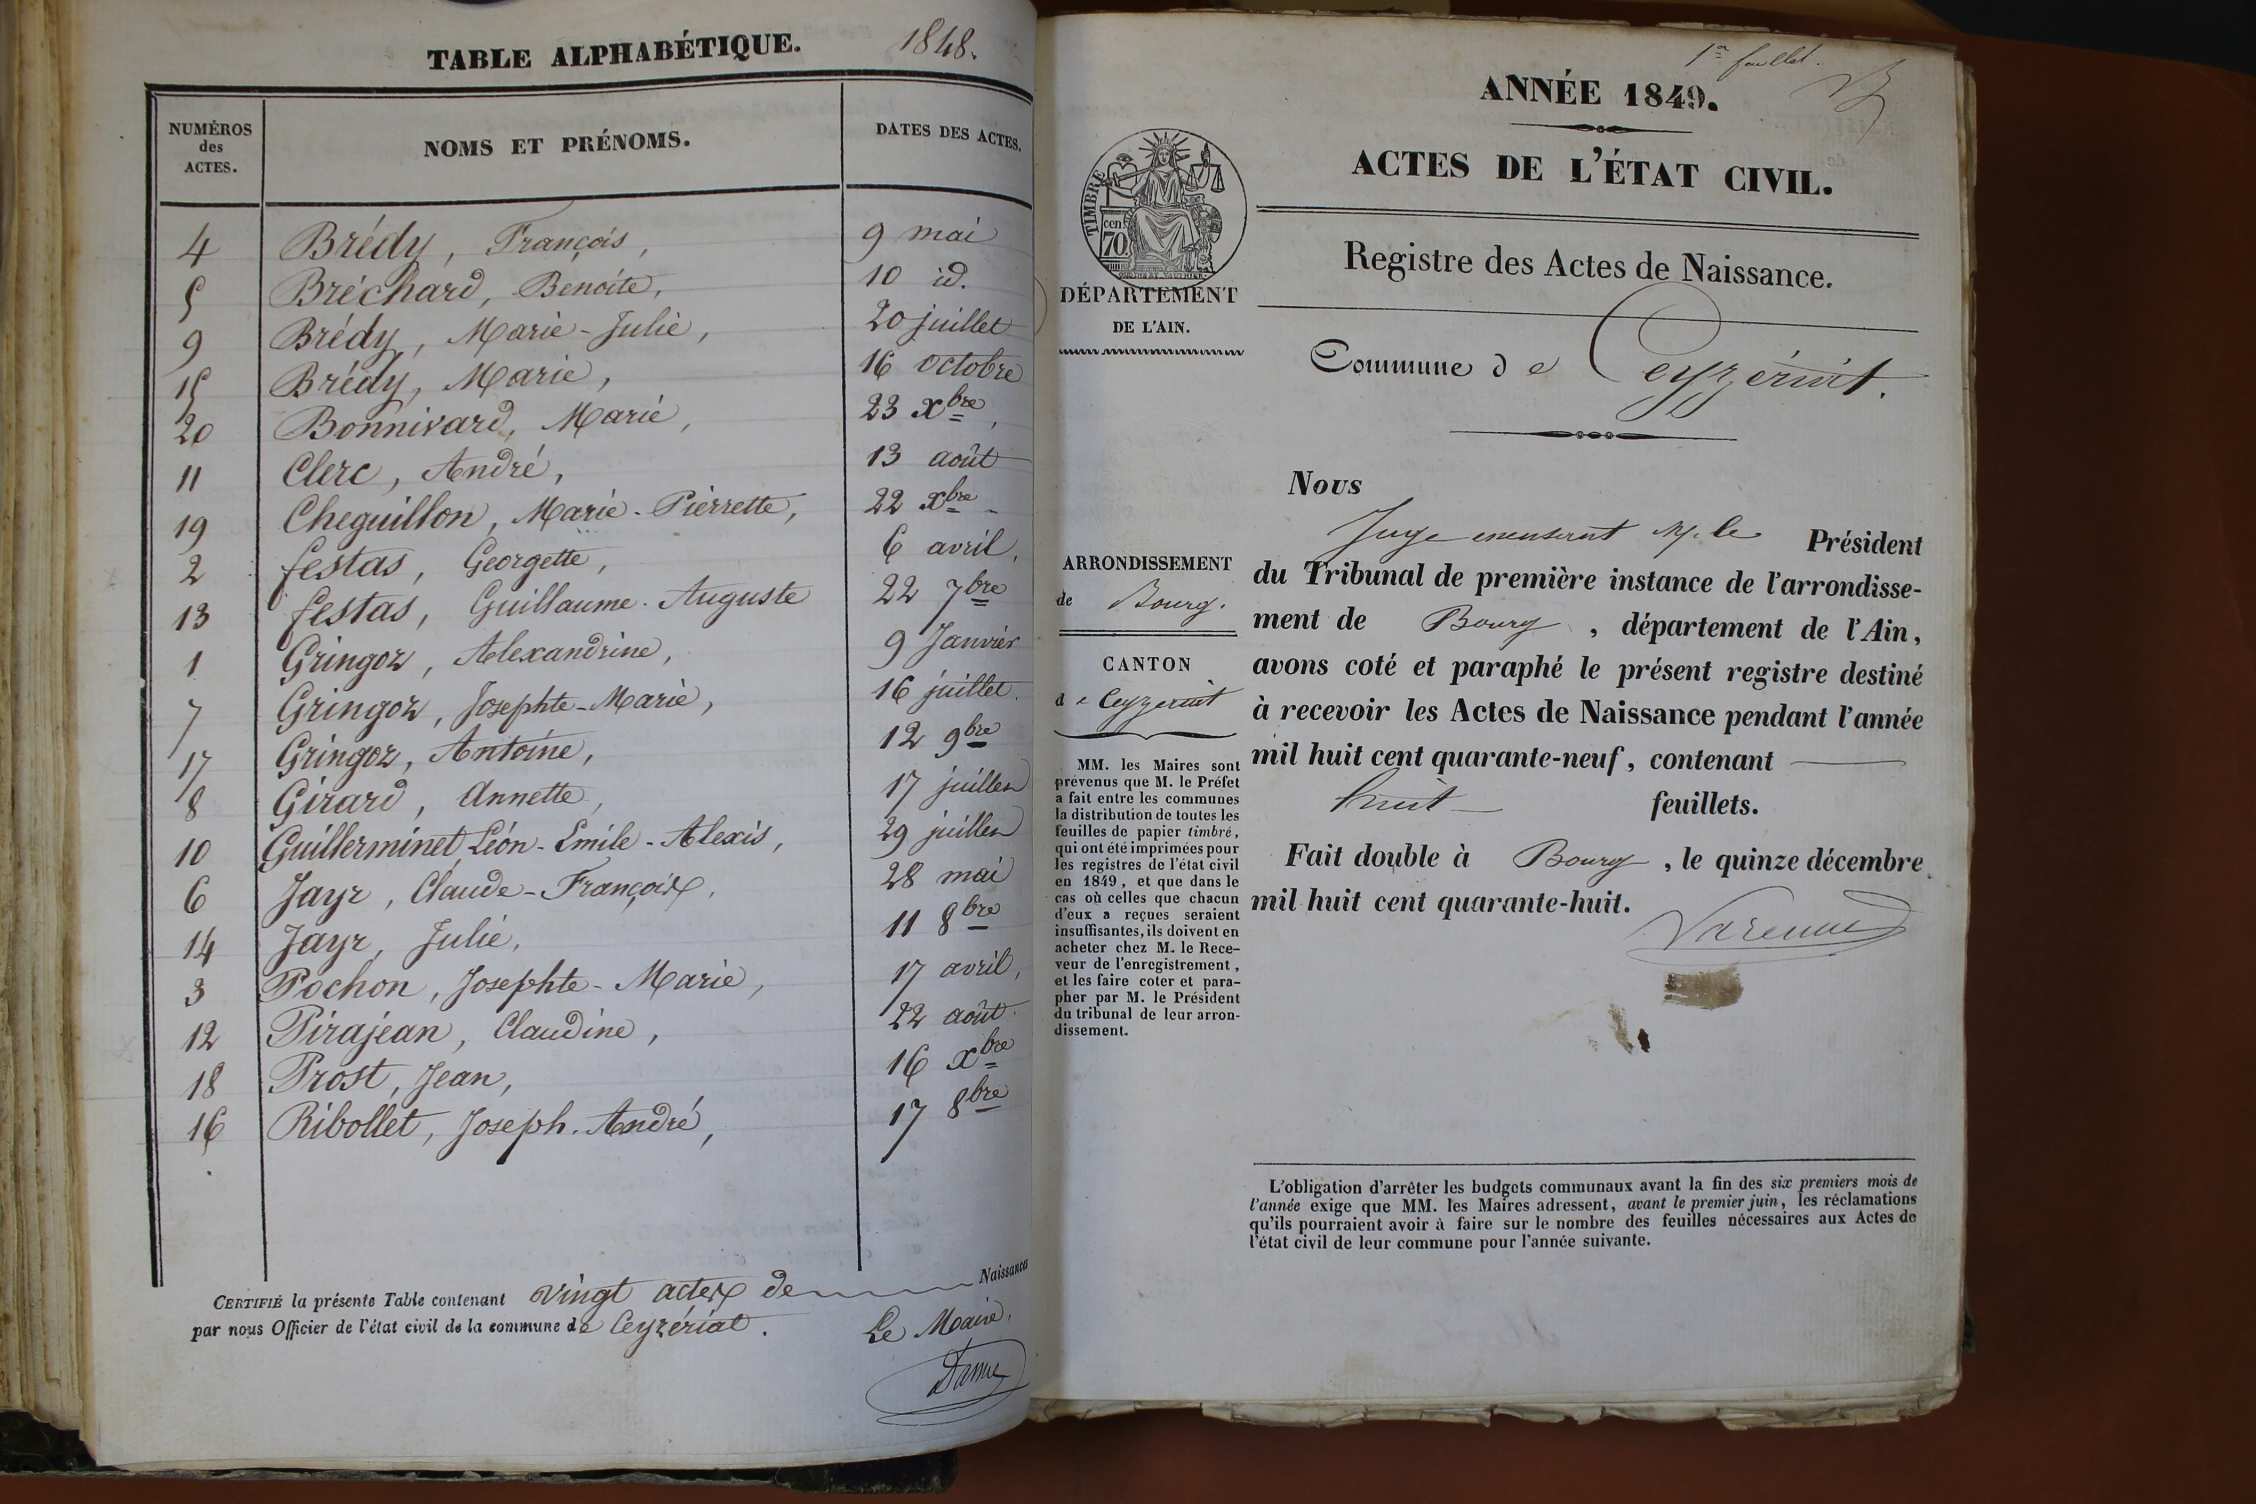 TABLE ALPHABÉTIQUE. 1848.
NUMÉROS des ACTES. NOMS ET PRÉNOMS. DATES DES ACTES.
4 Brédy, François, 9 mai
5 Bréchard, Benoite, 10 id.
9 Brédy, Marie-Julie, 20 juillet
15 Brédy, Marie, 16 octobre
20 Bonnivard, Marie, 23 Xbre,
11 Clerc, André, 13 août
19 Cheguillon, Marie-Pierrette, 22 Xbre
2 festas, Georgette, 6 avril,
13 festas, Guillaume-Auguste 22 7bre
1 Gringoz, Alexandrine, 9 Janvier
7 Gringoz, Josephte-Marie, 16 juillet.
17 Gringoz, Antoine, 12 9bre
8 Girard, Annette, 17 juillet
10 Guillerminet Léon-Emile-Alexis, 29 juillet
6 Jayr, Claude-François, 28 mai
14 Jayr, Julie, 11 8bre
3 Pochon, Josephte-Marie, 17 avril,
12 Pirajean, Claudine, 22 août.
18 Prost, Jean, 16 Xbre
16 Ribollet, Joseph-André, 17 8bre
CERTIFIÉ la présente Table contenant vingt actes de Naissances
par nous Officier de l'état civil de la commune de Ceyzériat.
Le Maire,
1er feuillet.
ANNÉE 1849.
ACTES DE L'ÉTAT CIVIL.
Registre des Actes de Naissance.
Commune de Ceyzériat.
TIMBRE
cen
70
DÉPARTEMENT
DE L'AIN.
ARRONDISSEMENT
de Bourg.
CANTON
de Ceyzeriat
MM. les Maires sont
prévenus que M. le Préfet
a fait entre les communes
la distribution de toutes les
feuilles de papier timbré,
qui ont été imprimées pour
les registres de l'état civil
en 1849, et que dans le
cas où celles que chacun
d'eux a reçues seraient
insuffisantes, ils doivent en
acheter chez M. le Rece-
veur de l'enregistrement,
et les faire coter et para-
pher par M. le Président
du tribunal de leur arron-
dissement.
Nous
Juge M. le Président
du Tribunal de première instance de l'arrondisse-
ment de Bourg, département de l'Ain,
avons coté et paraphé le présent registre destiné
à recevoir les Actes de Naissance pendant l'année
mil huit cent quarante-neuf, contenant
huit feuillets.
Fait double à Bourg, le quinze décembre
mil huit cent quarante-huit.
L'obligation d'arrêter les budgets communaux avant la fin des six premiers mois de
l'année exige que MM. les Maires adressent, avant le premier juin, les réclamations
qu'ils pourraient avoir à faire sur le nombre des feuilles nécessaires aux Actes de
l'état civil de leur commune pour l'année suivante.